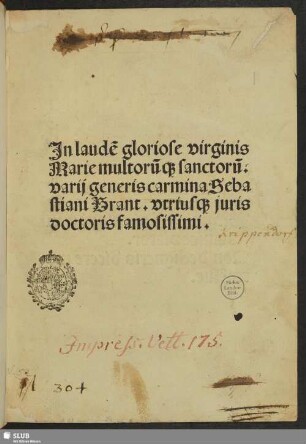 In laudē gloriose virginis
Marie multorū q̄ȝ sanctorū.
varij generis carmina Seba
stiani Brant. vtriusq̄ȝ juris
doctoris famosissimi.
Krippendorf
Impress. Vett. 175.
304
SLUB